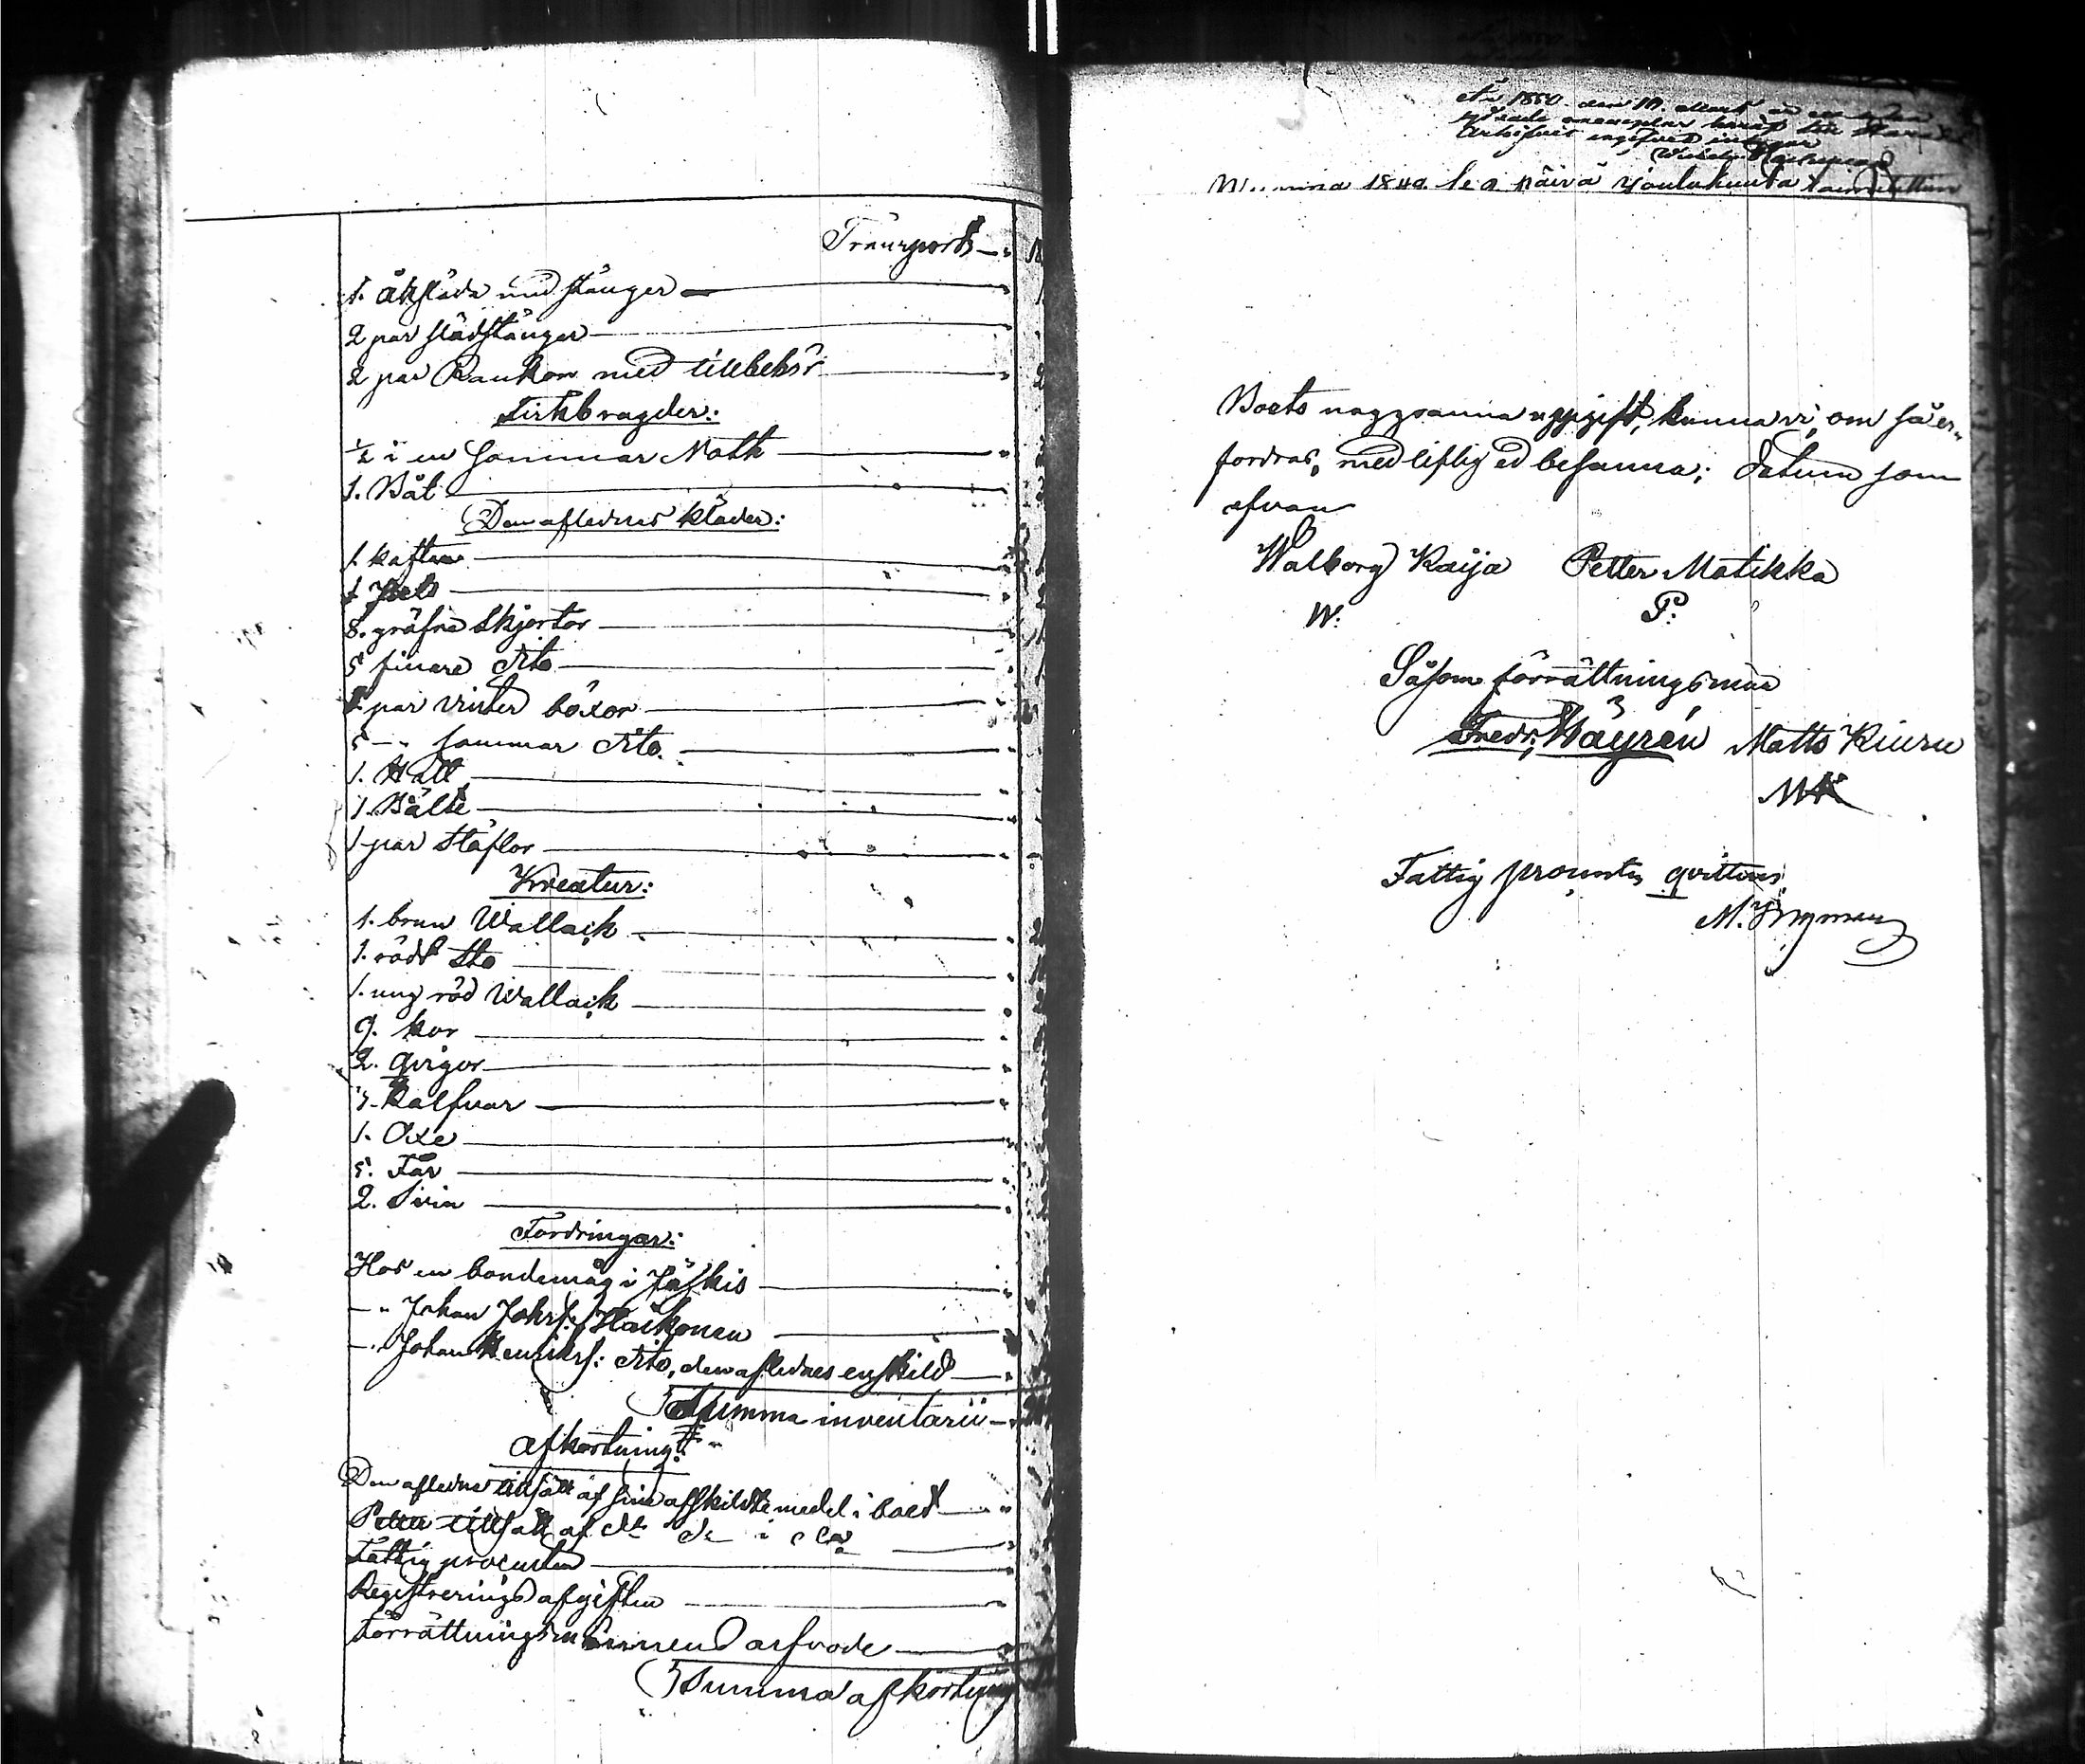 Transport
1. åksläda med stänger
2 par slädstänger
2 par Raukor med tillbehör
Fiskbragder:
1/2 i en sommar Noth
1. Båt
Den aflednes kläder:
1. kaftan
1 Pels
8. gröfre Skjortor
5 finare dito
par vinter böxor
5 -"- sommar dito.
1. Hatt
1. Bälte
1 par Stöflor
Kreatur:
1. brun Wallack
1. rödt Sto
1. ung röd Wallack
9. kor
2. qvigor
3. kalfvar
1. Oxe
5. Får
2. Svin
Fordringar:
Hos en bondemåg i Jäskis
-"- Johan Johsf: Haikonen
-"- Johan Henriksf: dito, den aflednes enskild
Summa inventarii
Afkortning:
Den aflednes tillsatt af sine afskildte medel i boet
Petter tillsatt af dt d i
Fattig procenten
Registrerings afgiften
Förrättningsmännens arfvode
Summa afkortning
1850 den
Wuonna 1849 päivä Joulukuuta toimitettiin
Boets noggranna uppgift, kunna vi, om så er-
fordras, med liflig ed besanna; Datum som
ofvan
Walborg Kaija Petter Matikka
W: P:
Såsom förrättningsmän
Fredr: Häyrén Matts Kiuru
MK
Fattig procents qvittens
M. Ingman